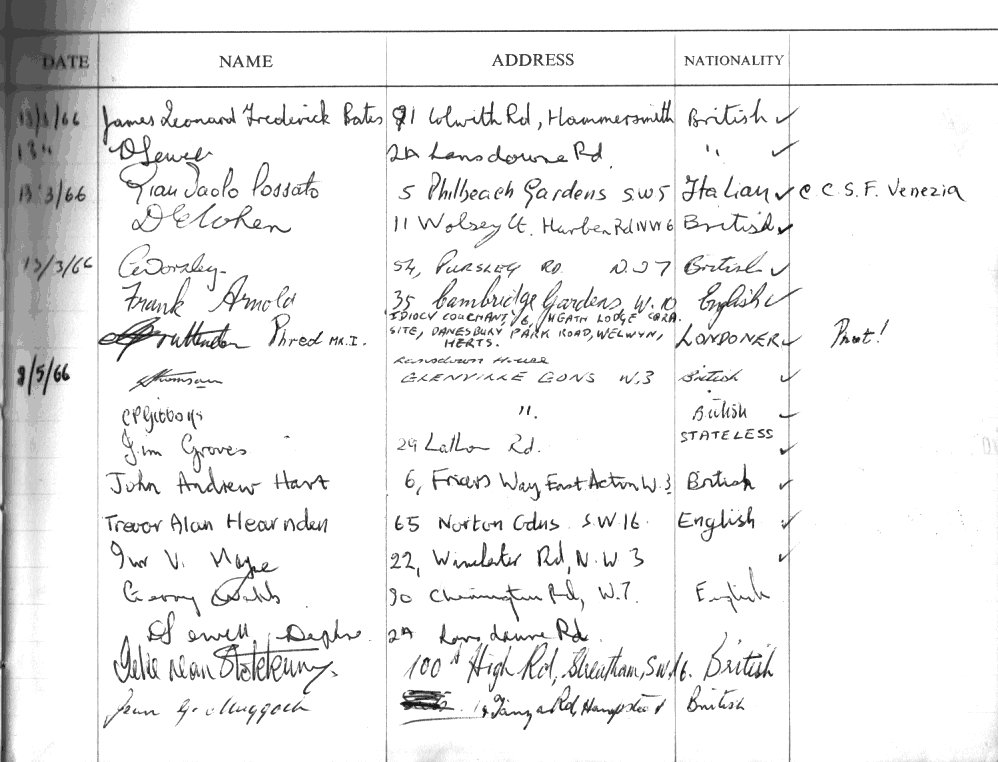 DATE NAME ADDRESS NATIONALITY
13/3/66 James Leonard Frederick Bates 91 Colwith Rd, Hammersmith British ✓
13 " D Sewell 2A Lansdowne Rd. " ✓
13/3/66 Gian Paolo Cossato 5 Philbeach Gardens S.W5 Italian ✓ C.C.S.F. Venezia
D E Cohen 11 Wolsey Ct. Harben Rd NW6 British ✓
13/3/66 54, PURSLEY RD. N.W7 British ✓
Frank Arnold 35 Cambridge Gardens, W.10 English ✓
Phred MK.I. "IDIOCY COUCHANT", HEATH LODGE CARA.
SITE, DANESBURY PARK ROAD, WELWYN,
HERTS. LONDONER ✓ Phoot!
Lansdown House
8/5/66 GLENVILLE GDNS W.3 British ✓
CP Gibbons ". British ✓
Jim Groves 29 Lathom Rd. STATELESS ✓
John Andrew Hart 6, Friars Way, East Acton W.3 British ✓
Trevor Alan Hearnden 65 Norton Gdns S.W.16. English ✓
22, Winchester Rd, N.W 3 ✓
Gerry Webb 90 Rd, W.7. English
D Sewell Daphne 2A Lansdowne Rd.
100A High Rd, Streatham, S.W.16. British
Jean G. Muggoch Rd, Hampstead British